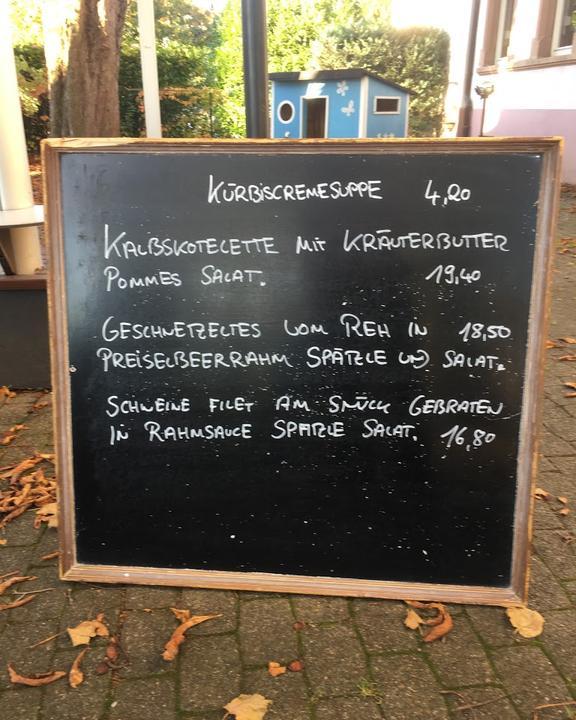 KÜRBISCREMESUPPE 4,20
KALBSKOTELETTE MIT KRÄUTERBUTTER
POMMES SALAT. 19,40
GESCHNETZELTES VOM REH IN 18,50
PREISELBEERRAHM SPÄTZLE UND SALAT.
SCHWEINE FILET AM STÜCK GEBRATEN
IN RAHMSAUCE SPÄTZLE SALAT. 16,80